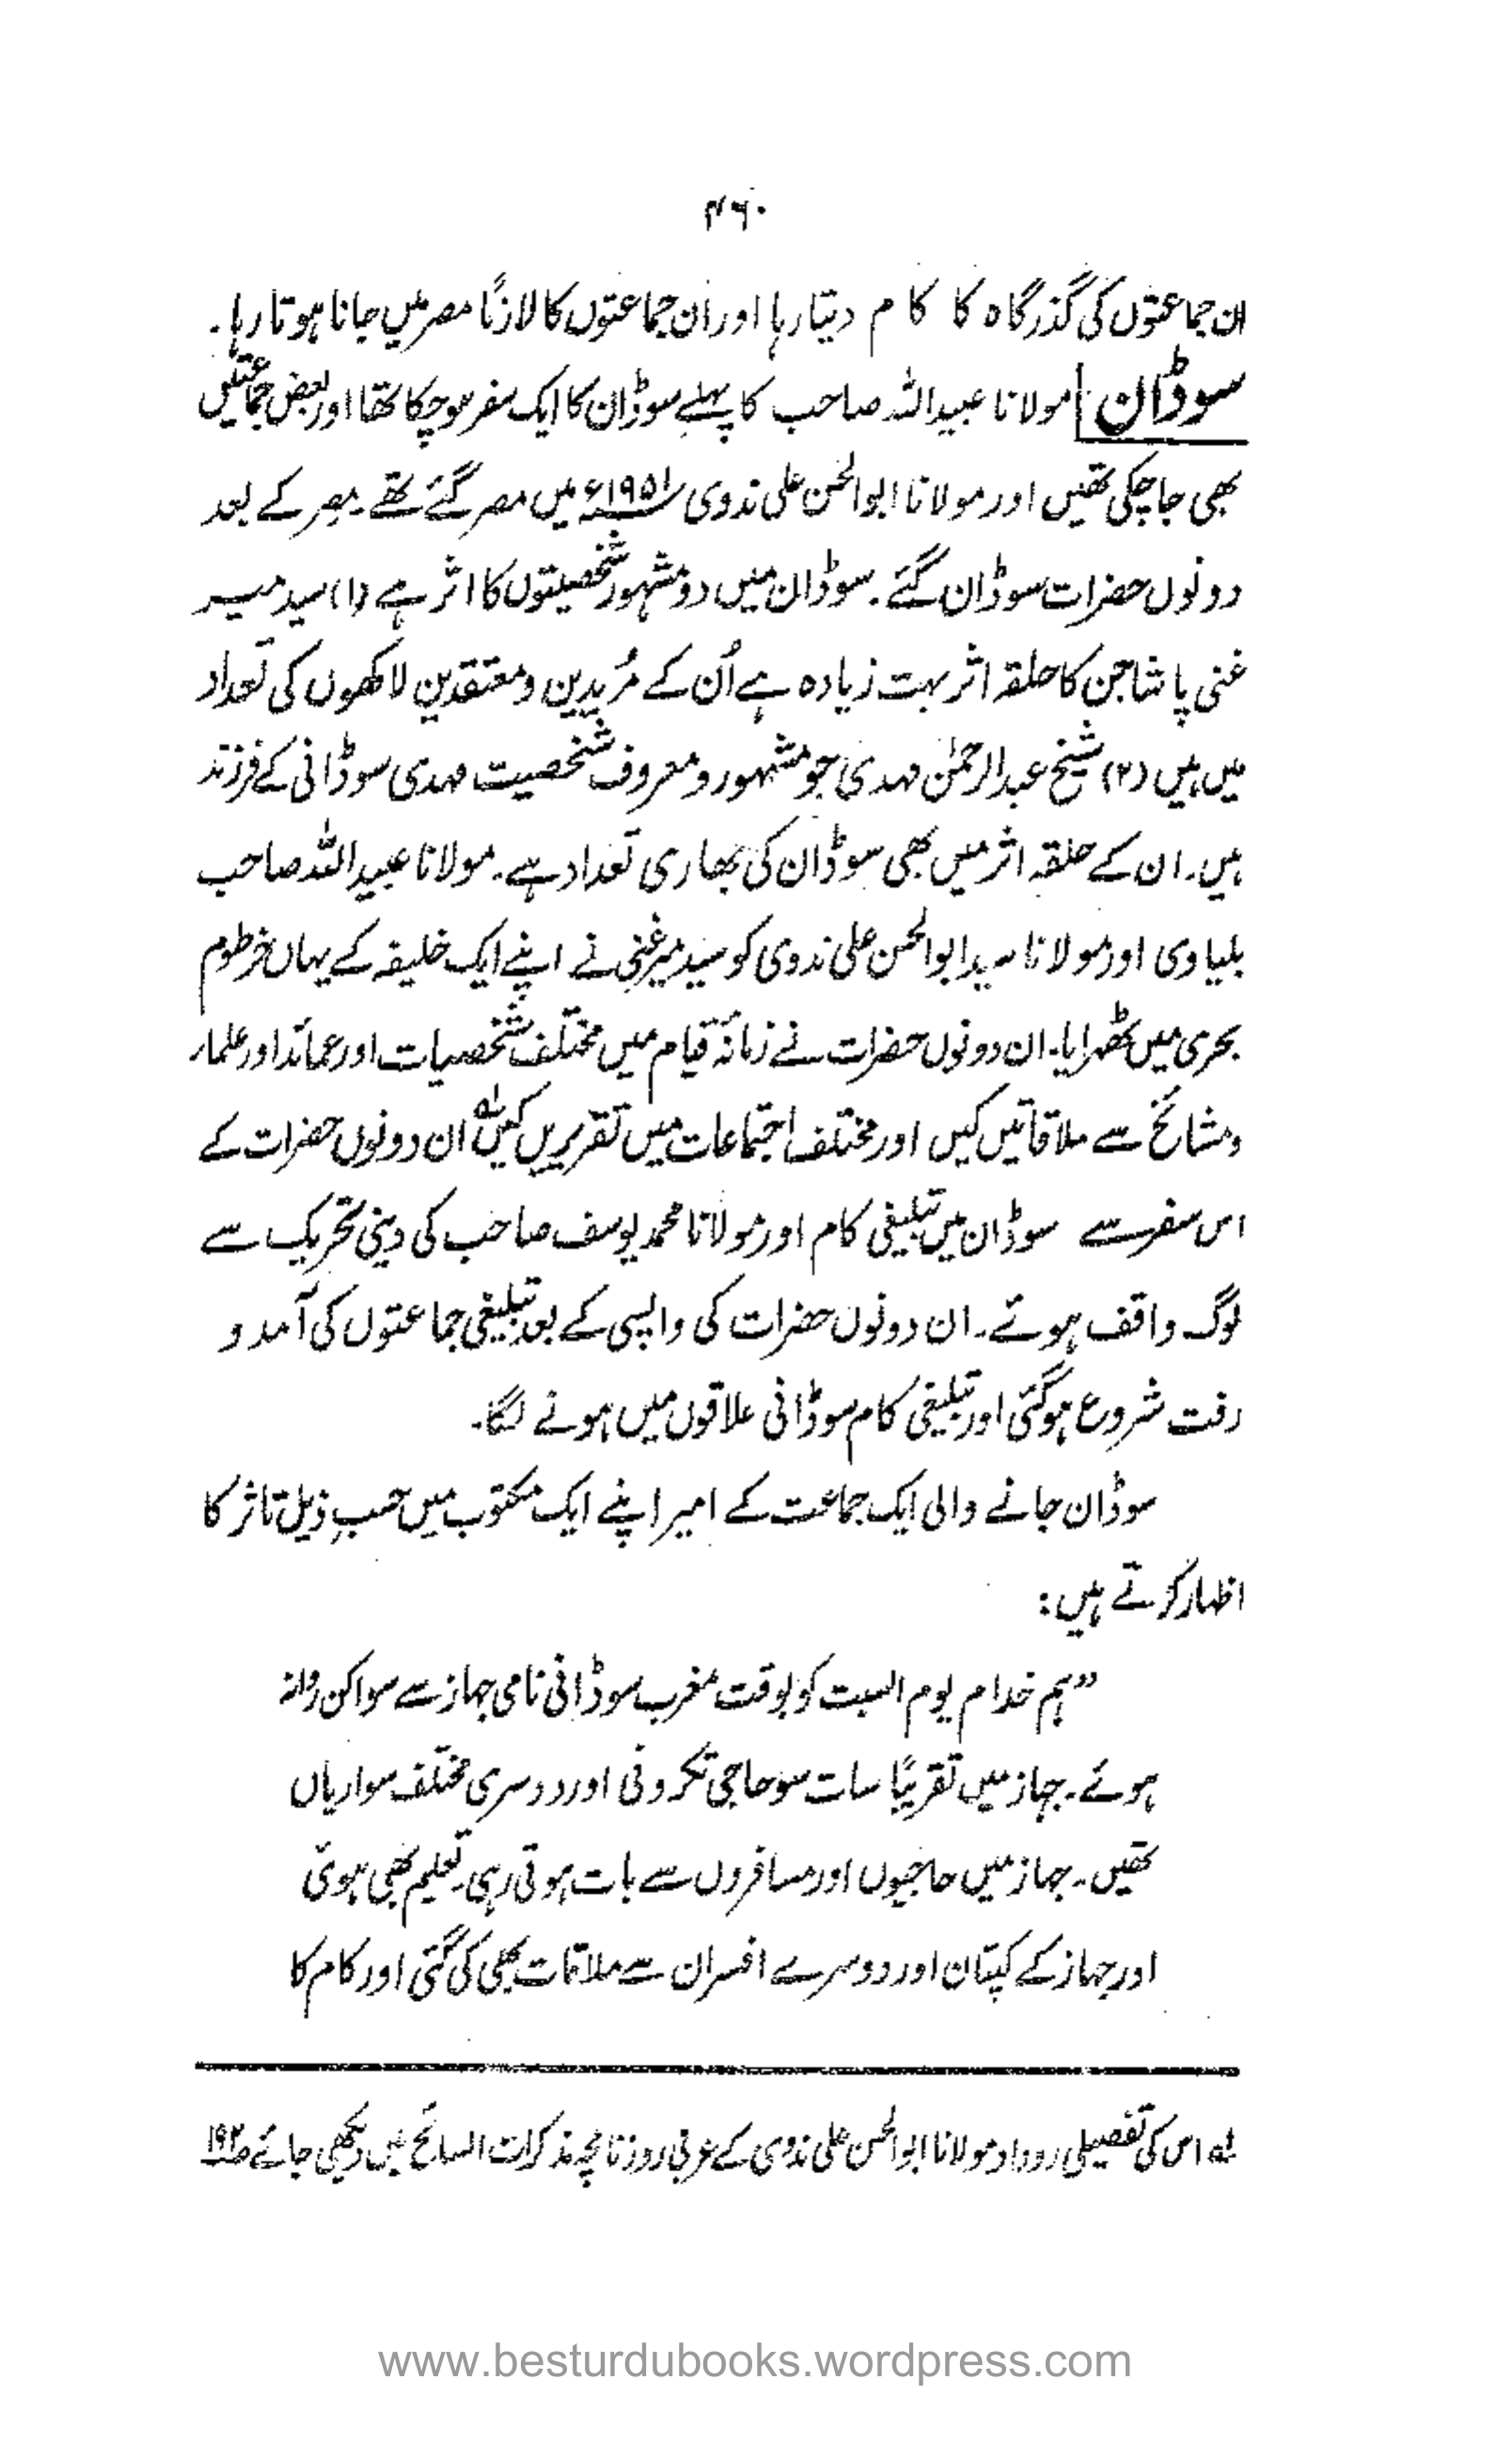 ۴۶۰
ان جماعتوں کی گذرگاہ کا کام دیتا رہا اور ان جماعتوں کا لازمًا مصر میں جانا ہوتا رہا۔
سوڈان | مولانا عبیداللہ صاحب کا پہلے سوڈان کا ایک سفر ہو چکا تھا اور بعض جماعتیں
بھی جا چکی تھیں اور مولانا ابوالحسن علی ندوی ۱۹۵۱ء میں مصر گئے تھے۔ مصر کے بعد
دونوں حضرات سوڈان گئے۔ سوڈان میں دو مشہور شخصیتوں کا اثر ہے (۱) سید میر
غنی پاشا جن کا حلقہ اثر بہت زیادہ ہے اُن کے مُریدین و معتقدین لاکھوں کی تعداد
میں ہیں (۲) شیخ عبدالرحمٰن مہدی جو مشہور و معروف شخصیت مہدی سوڈانی کے فرزند
ہیں۔ ان کے حلقہ اثر میں بھی سوڈان کی بھاری تعداد ہے۔ مولانا عبیداللہ صاحب
بلیاوی اور مولانا سید ابوالحسن علی ندوی کو سید میرغنی نے اپنے ایک خلیفہ کے یہاں خرطوم
بحری میں ٹھہرایا۔ ان دونوں حضرات نے زمانۂ قیام میں مختلف شخصیات اور عمائد اور علماء
و مشائخ سے ملاقاتیں کیں اور مختلف اجتماعات میں تقریریں کیں لہ ان دونوں حضرات کے
اس سفر سے سوڈان میں تبلیغی کام اور مولانا محمد یوسف صاحب کی دینی تحریک سے
لوگ واقف ہوئے۔ ان دونوں حضرات کی واپسی کے بعد تبلیغی جماعتوں کی آمد و
رفت شروع ہو گئی اور تبلیغی کام سوڈانی علاقوں میں ہونے لگا۔
سوڈان جانے والی ایک جماعت کے امیر اپنے ایک مکتوب میں حسبِ ذیل تاثر کا
اظہار کرتے ہیں:
”ہم خدام یوم السبت کو بوقت مغرب سوڈانی نامی جہاز سے سواکن روانہ
ہوئے۔ جہاز میں تقریبًا سات سو حاجی تکرونی اور دوسری مختلف سواریاں
تھیں۔ جہاز میں حاجیوں اور مسافروں سے بات ہوتی رہی۔ تعلیم بھی ہوئی
اور جہاز کے کپتان اور دوسرے افسران سے ملاقات بھی کی گئی اور کام کا
لہ اس کی تفصیلی روداد مولانا ابوالحسن علی ندوی کے عربی روزنامچہ مذکرات السائح میں دیکھی جائے
www.besturdubooks.wordpress.com